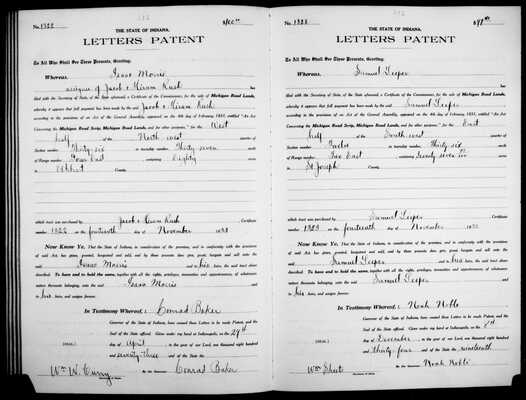 No. 1322
$100.00
THE STATE OF INDIANA.
LETTERS PATENT
To All Who Shall See These Presents, Greeting:
Whereas, Isaac Morris
assignee of Jacob & Hiram Rush has
filed with the Secretary of State, of the State aforesaid, a Certificate of the Commissioner, for the sale of Michigan Road Lands,
whereby it appears that full payment has been made by the said Jacob & Hiram Rush
according to the provisions of an Act of the General Assembly, approved on the 4th day of February, 1831, entitled "An Act
Concerning the Michigan Road Scrip, Michigan Road Lands, and for other purposes," for the West
half of the North west quarter of
Section number Thirty six in township number Thirty seven north
of Range number Four East, containing Eighty acres
in Elkhart County,
which tract was purchased by Jacob & Hiram Rush Certificate
number 1322 on the fourteenth day of November 18
Now Know Ye, That the State of Indiana, in consideration of the premises, and in conformity with the provisions
of said Act has given, granted, bargained and sold, and by these presents does give, grant, bargain and sell unto the said
Isaac Morris and to his heirs, the said tract above
described. To have and to hold the same, together with all the rights, privileges, immunities and appurtenances, of whatsoever
nature thereunto belonging, unto the said Isaac Morris and
to his heirs, and assigns forever.
In Testimony Whereof, Conrad Baker
Governor of the State of Indiana, have caused these Letters to be made Patent, and the
Seal of the State affixed. Given under my hand at Indianapolis, on the 29th
(SEAL) day of April in the year of our Lord, one thousand eight hundred
and seventy three and of the State the
Wm W. Curry By the Governor: Conrad Baker
Secretary of State.
No. 1323
THE STATE OF INDIANA.
LETTERS PATENT
To All Who Shall See These Presents, Greeting:
Whereas, Samuel Leeper
has
filed with the Secretary of State, of the State aforesaid, a Certificate of the Commissioner, for the sale of Michigan Road Lands,
whereby it appears that full payment has been made by the said Samuel Leeper
according to the provisions of an Act of the General Assembly, approved on the 4th day of February, 1831, entitled "An Act
Concerning the Michigan Road Scrip, Michigan Road Lands, and for other purposes," for the East
half of the South west quarter of
Section number Twelve in township number Thirty six north
of Range number Two East, containing Seventy seven acres
in St Joseph County,
which tract was purchased by Samuel Leeper Certificate
number 1323 on the fourteenth day of November 18
Now Know Ye, That the State of Indiana, in consideration of the premises, and in conformity with the provisions
of said Act has given, granted, bargained and sold, and by these presents does give, grant, bargain and sell unto the said
Samuel Leeper and to his heirs, the said tract above
described. To have and to hold the same, together with all the rights, privileges, immunities and appurtenances, of whatsoever
nature thereunto belonging, unto the said Samuel Leeper and
to his heirs, and assigns forever.
In Testimony Whereof, Noah Noble
Governor of the State of Indiana, have caused these Letters to be made Patent, and the
Seal of the State affixed. Given under my hand at Indianapolis, on the
(SEAL) day of December in the year of our Lord, one thousand eight hundred
and thirty-four and of the State the nineteenth
Wm Sheets By the Governor: Noah Noble
Secretary of State.